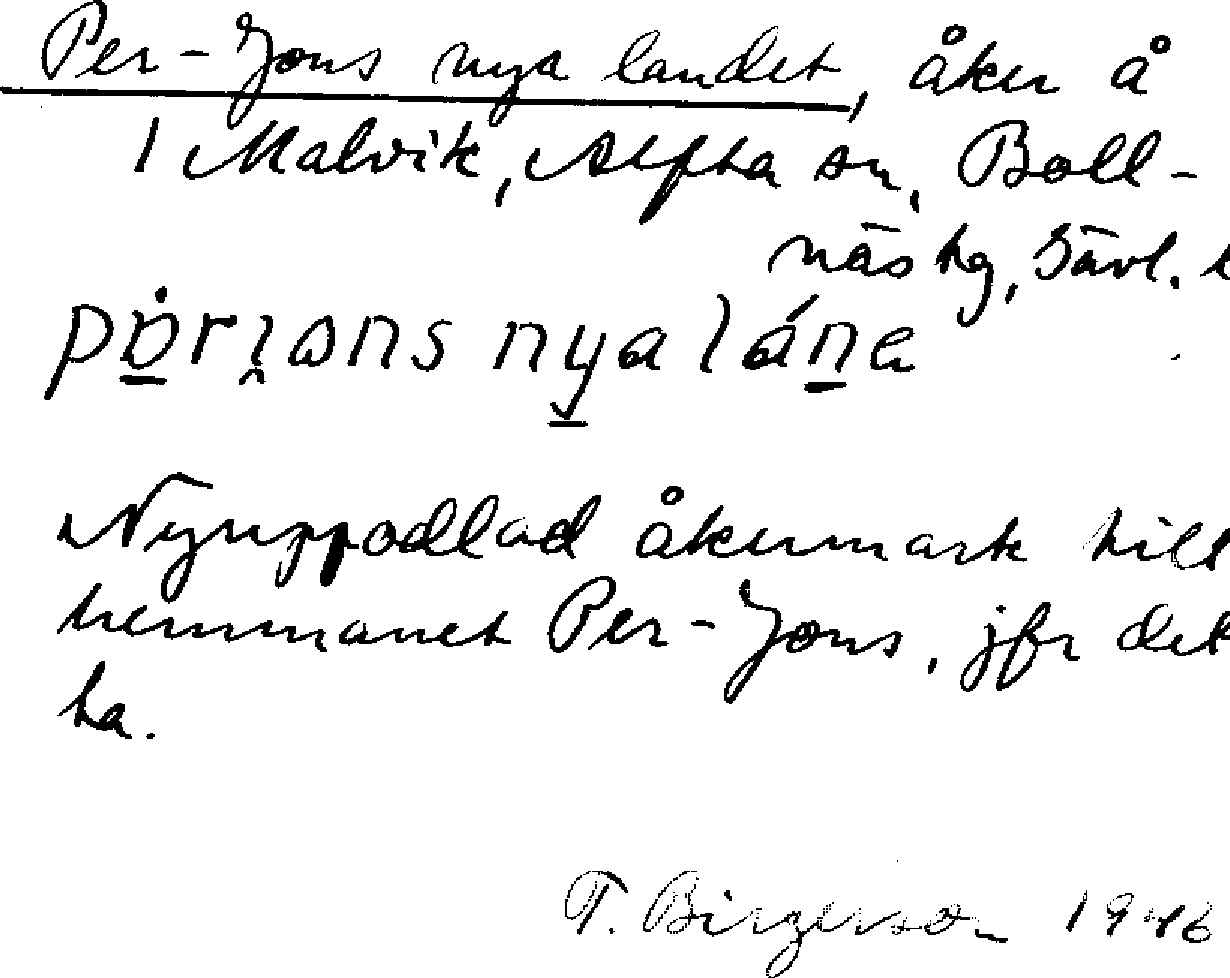 Per-Jons nya landet, åker å
1 Malvik, Alfta sn, Boll-
näs hg, Gävl. l
Nyuppodlad åkermark till
hemmanet Per-Jons, jfr det
ta.
T. Birgerson 1946